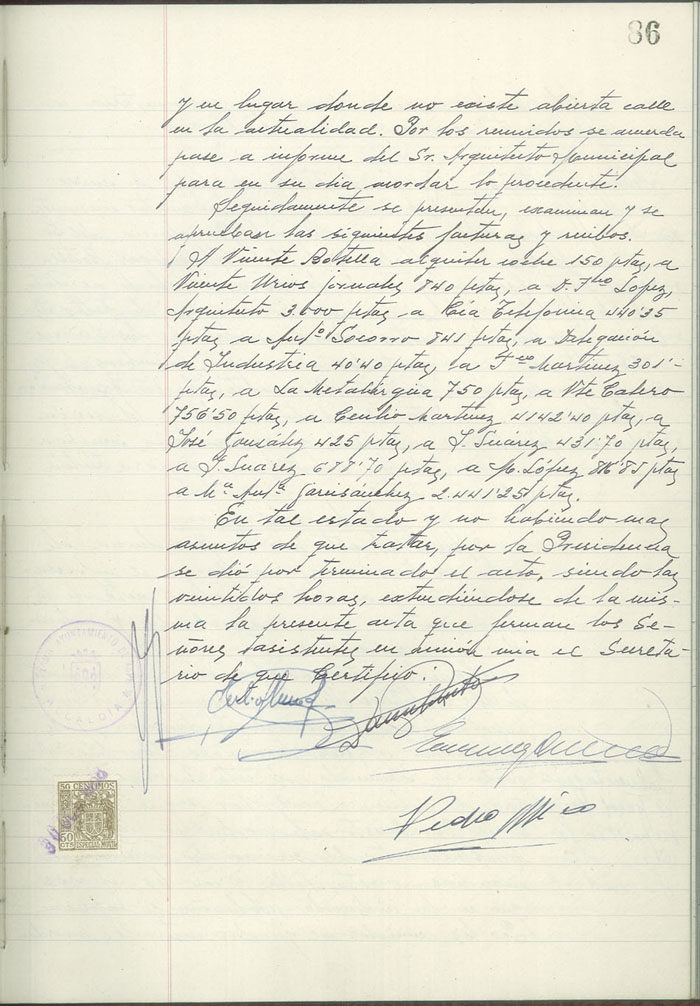 86
y en lugar donde no existe abierta calle
en la actualidad. Por los reunidos se acuerda
pase a informe del Sr. Arquitecto Municipal
para en su dia acordar lo procedente.
Seguidamente se presentan, examinan y se
aprueban las siguientes facturas y recibos.
A Vicente Botella alquiler coche 150 ptas, a
Vicente Urios jornales 840 ptas, a D. Fco López,
Arquitecto 3.000 ptas, a Cía Telefónica 440'35
ptas, a Antº Socorro 841 ptas, a Delegación
de Industria 40'40 ptas, a Fco Martinez 301'-
ptas, a La Metalúrgica 750 ptas, a Vte Calero
756'50 ptas, a Cecilio Martinez 4142'40 ptas, a
José González 425 ptas, a J. Suárez 431'70 ptas,
a J. Suarez 688'70 ptas, a M. López 816'85 ptas
a Mª Antª Garisánchez 2.441'25 ptas.
En tal estado y no habiendo mas
asuntos de que tratar, por la Presidencia
se dió por terminado el acto, siendo las
veintidos horas, extendiéndose de la mis-
ma la presente acta que firman los Se-
ñores asistentes en unión mia el Secreta-
rio de que Certifico.
Pedro Mico
AYUNTAMIENTO
ALCALDIA
50 CENTIMOS
50 CTS ESPECIAL MOVIL